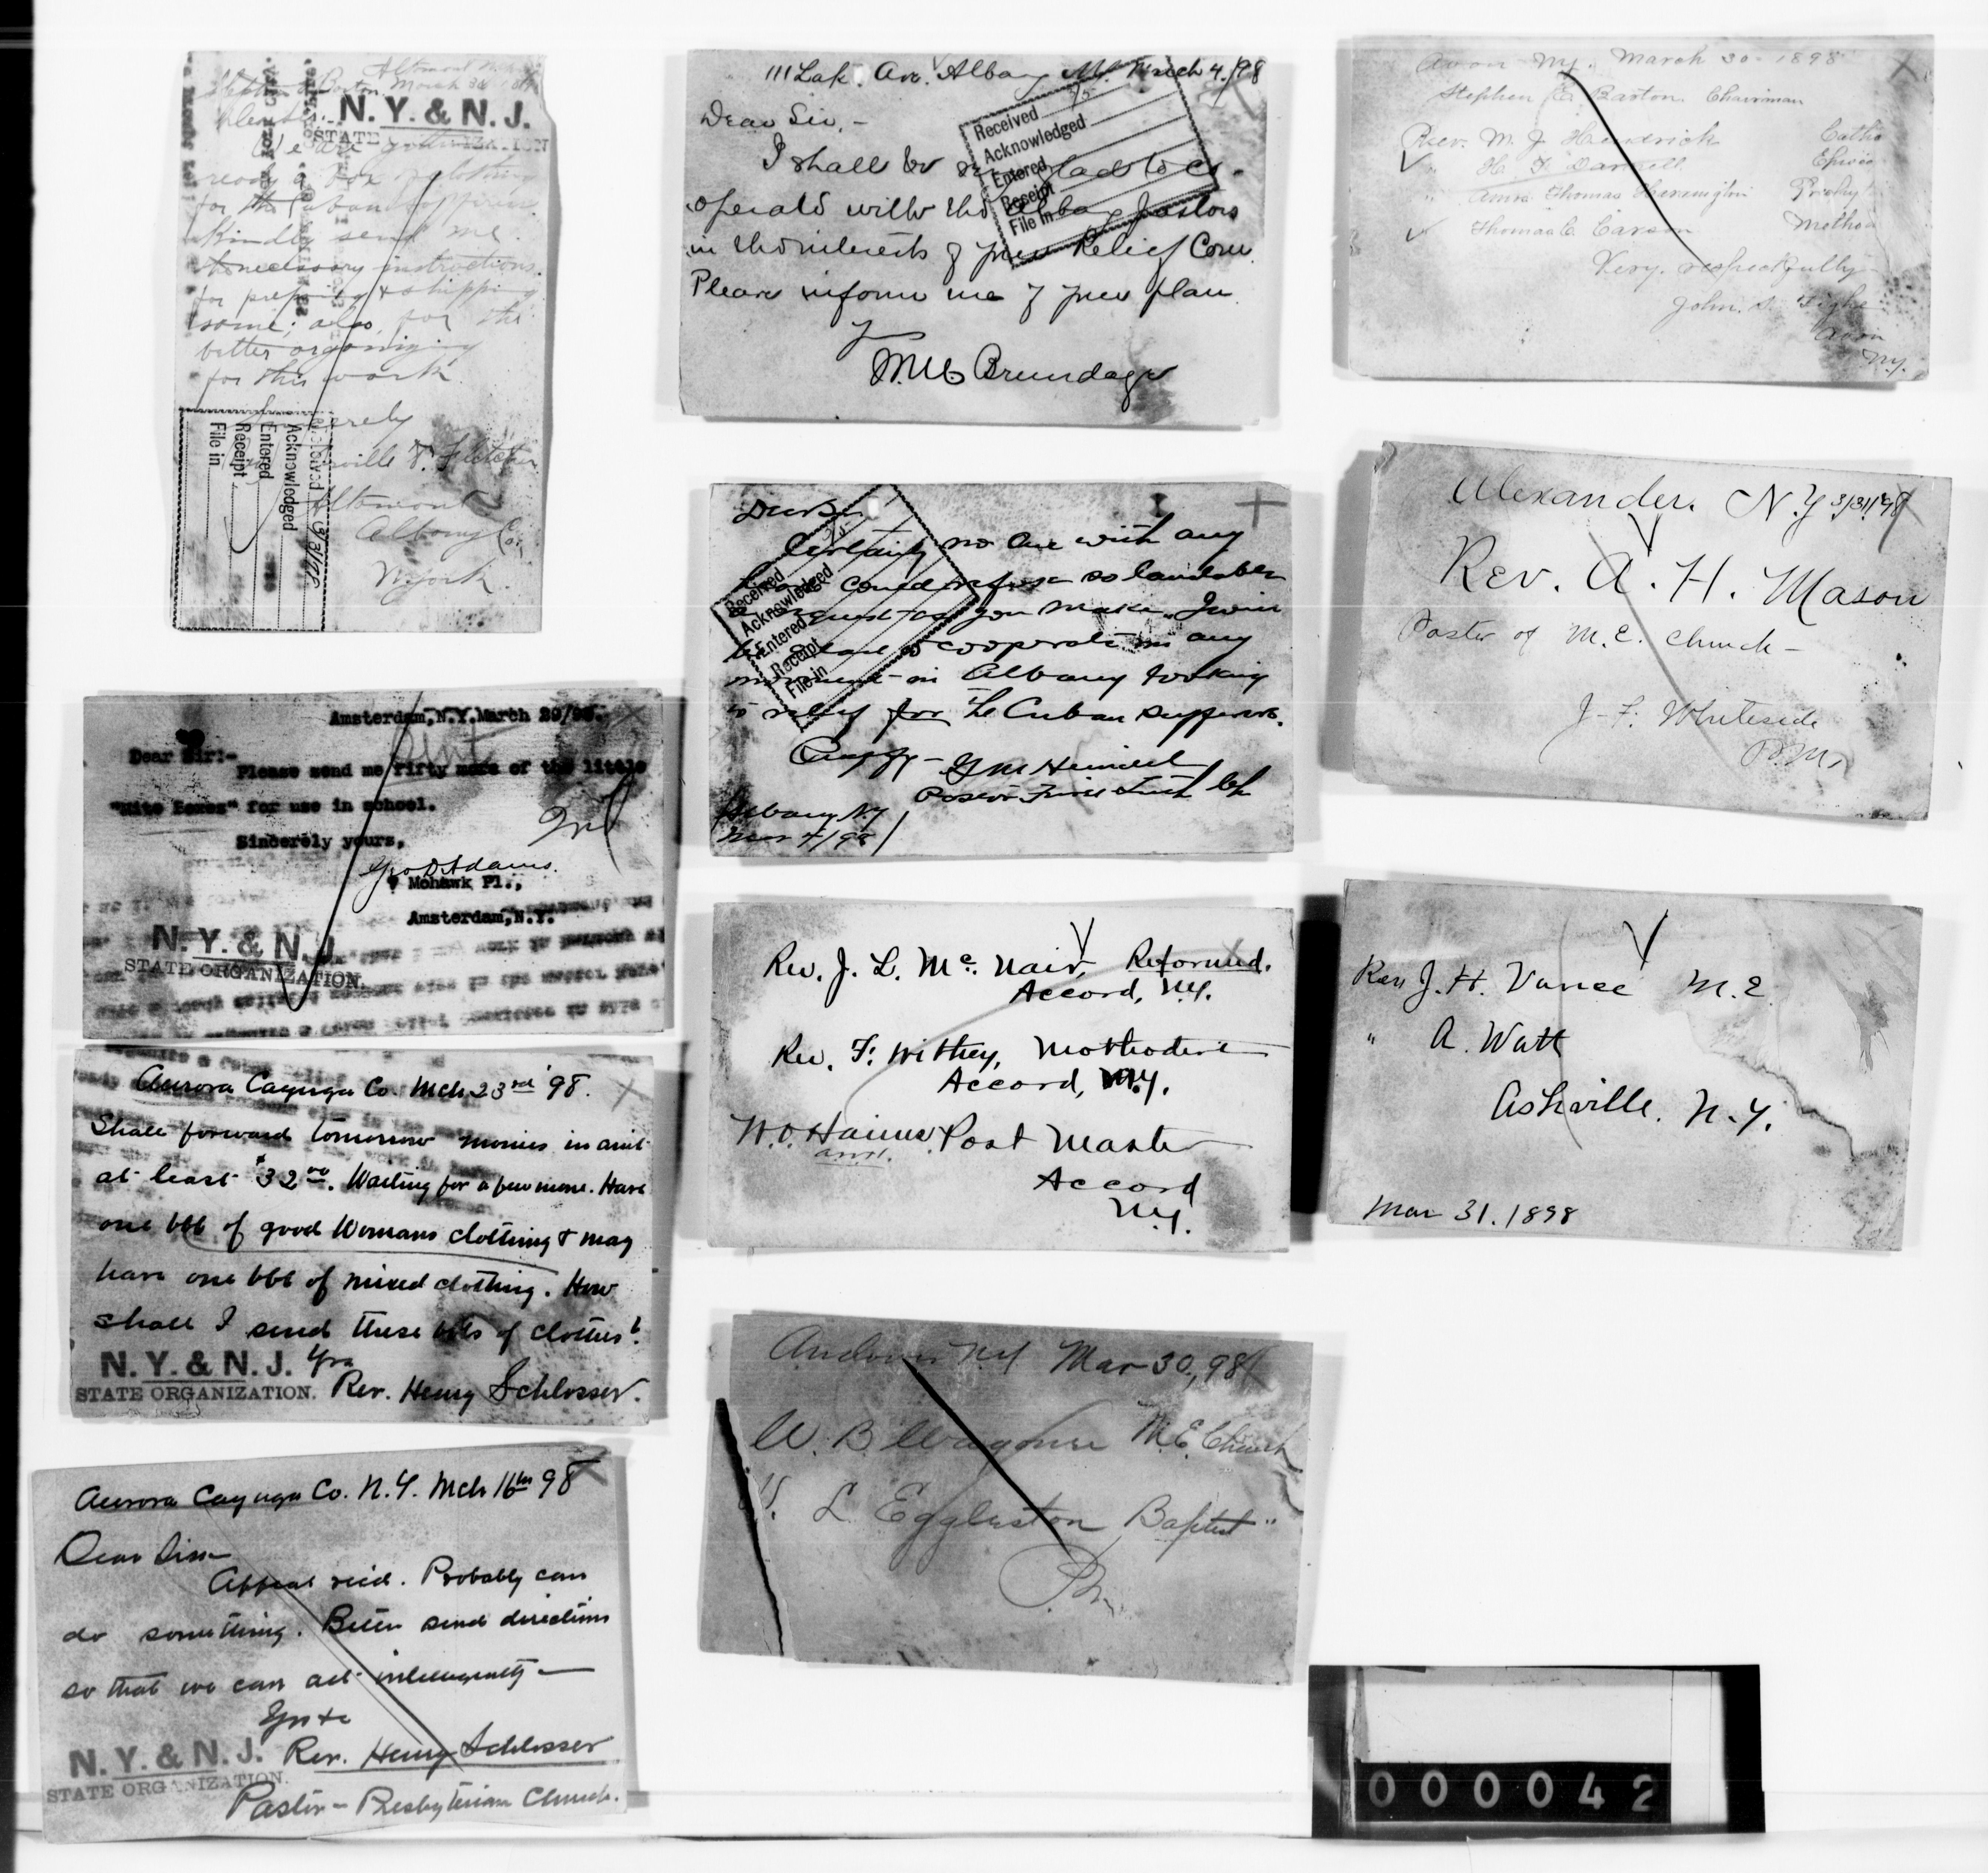 Altamont
Barton March
N. Y. & N. J.
STATE ORGANIZATION
We are getting
ready a box of clothing
for the Cuban
Kindly send me
necessary instructions
for & shipping
same; also, for the
better organizing
for this work.
Fletcher
Altamont
Albany Co.
N York
Received
Acknowledged
Entered
Receipt
File in
Amsterdam, N.Y. March 29/98.
Dear Sir:-
Please send me fifty more of the little
"Mite Boxes" for use in school.
Sincerely yours,
Geo D Adams.
Mohawk Pl.,
Amsterdam, N.Y.
N. Y. & N. J.
STATE ORGANIZATION.
Aurora Cayuga Co. Mch 23rd '98.
Shall forward tomorrow monies in amt
at least $32.00. Waiting for a few more. Have
one bbl of good Womans clothing & may
have one bbl of mixed clothing. How
shall I send these bbls of clothes?
N. Y. & N. J. Yrs
STATE ORGANIZATION. Rev. Henry Schlosser.
Aurora Cayuga Co. N.Y. Mch 16th 98
Dear Sirs
Appeal recd. Probably can
do something. Better send directions
so that we can act intelligently—
Yrs &c
N. Y. & N. J. Rev. Henry Schlosser
STATE ORGANIZATION.
Pastor - Presbyterian Church.
111 Lake Ave. Albany March 4./98
Dear Sir,-
Received
Acknowledged
Entered
Receipt
File in
I shall be glad to co-
operate with the Albany pastors
in the interests of your Relief Com
Please inform me of your plan.
M.W. Brundage
Dear Sir
Certainly no one with any
could refuse so laudable
request as you make. I will
be glad to cooperate in any
movement in Albany looking
to relief for the Cuban sufferers.
Received
Acknowledged
Entered
Receipt
File in
Albany N.Y
Mar 4/98
Rev. J. L. Mc. Nair, Reformed.
Accord, N.Y.
Rev. F. Withey, Methodist
Accord, N.Y.
Post Master
Accord
N.Y.
Andover NY Mar 30, 98
W. B. Wagoner M.E. Church
L Eggleston Baptist "
P.M.
Avon N.Y. March 30- 1898
Stephen E. Barton Chairman
Rev. M. J. Hendrick Catho
" H. F. Darnell Episco
" Thomas Presbyt
" Thomas C. Carson Metho
Very respectfully
John S.
Avon
N.Y.
Alexander. N.Y 3/31/98
Rev. A. H. Mason
Paster of M.E. Church-
J. F. Whiteside
P.M.
Rev J. H. Vance M.E.
" A. Watt
Ashville. N.Y.
Mar 31. 1898
000042